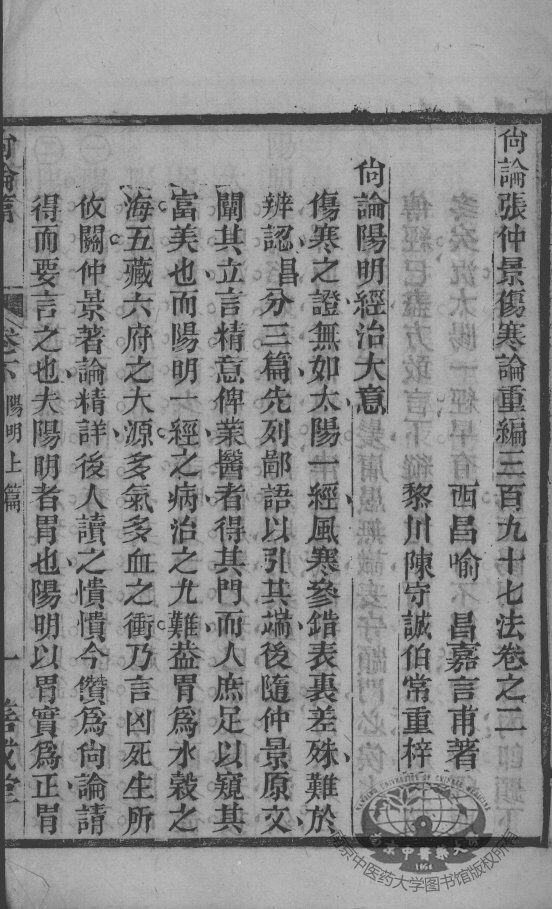 尙論張仲景傷寒論重編三百九十七法卷之二
西昌喻昌嘉言甫著
黎川陳守誠伯常重梓
尙論陽明經治大意
傷寒之證無如太陽一經風寒參錯表裏差殊難於
辨認昌分三篇先列鄙語以引其端後隨仲景原文
闡其立言精意俾業醫者得其門而人庶足以窺其
富美也而陽明一經之病治之尤難葢胃爲水穀之
海五藏六府之大源多氣多血之衝乃言凶死生所
攸關仲景著論精詳後人讀之憒憒今儹爲尙論請
得而要言之也夫陽明者胃也陽明以胃實爲正胃
尙論篇
卷之下
陽明上篇
一
善成堂
南京中医药大学图书馆版权所有
NANJING UNIVERSITY OF CHINESE MEDICINE
1954